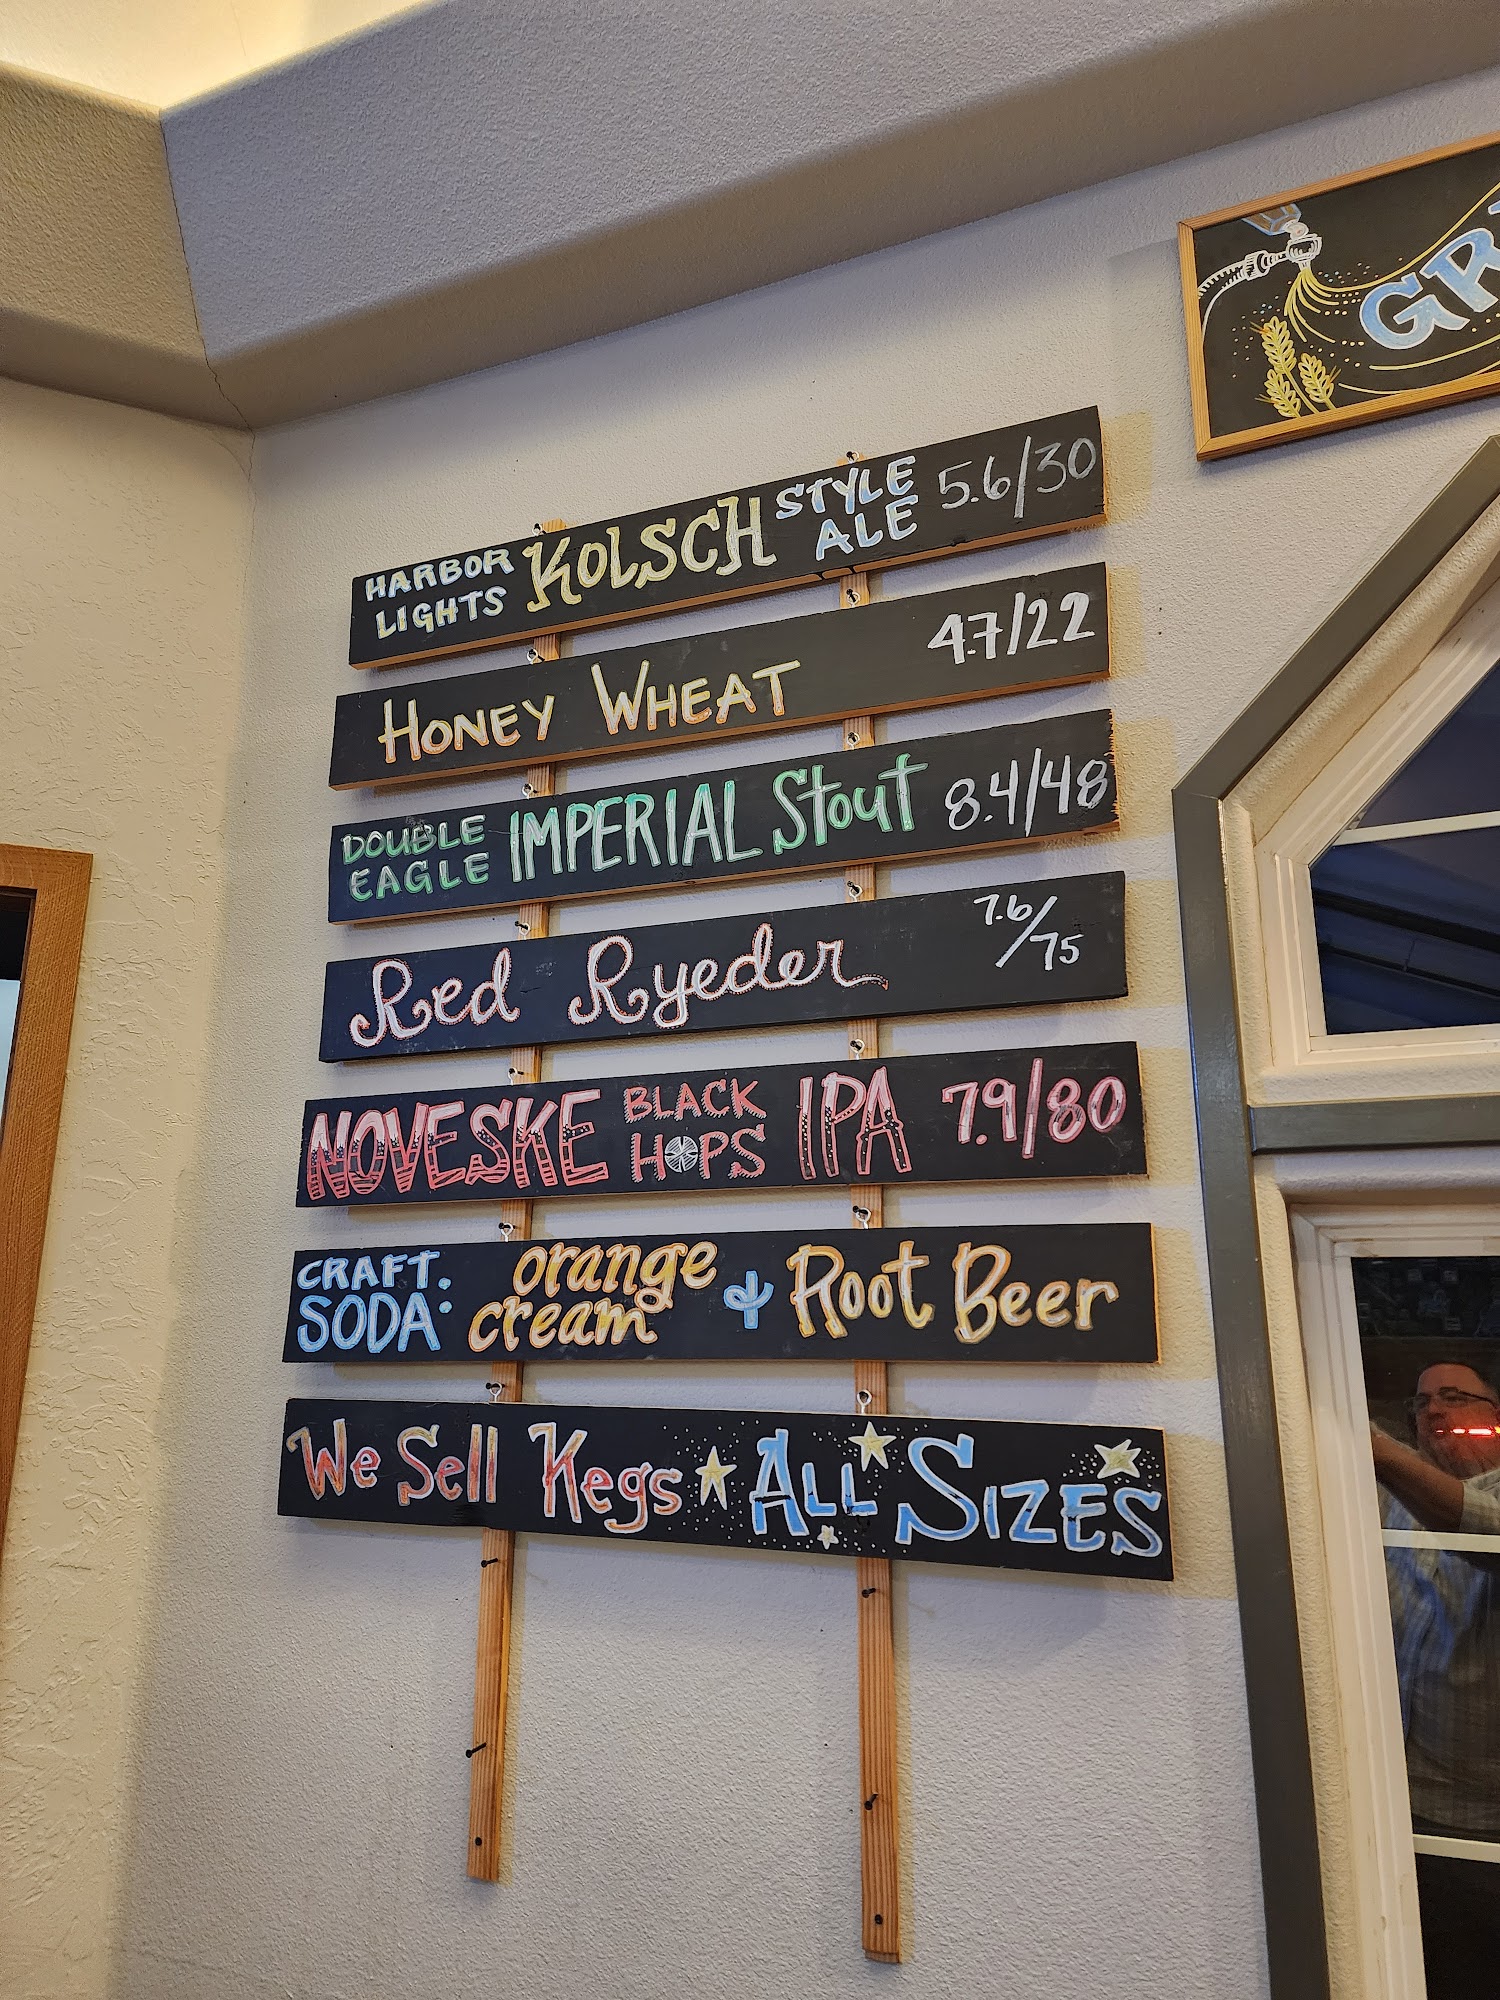 HARBOR LIGHTS KOLSCH STYLE ALE 5.6/30
HONEY WHEAT 4.7/22
DOUBLE EAGLE IMPERIAL Stout 8.4/48
Red Ryeder 7.6/75
NOVESKE BLACK HOPS IPA 7.9/80
CRAFT SODA: orange cream & Root Beer
We Sell Kegs ALL SIZES